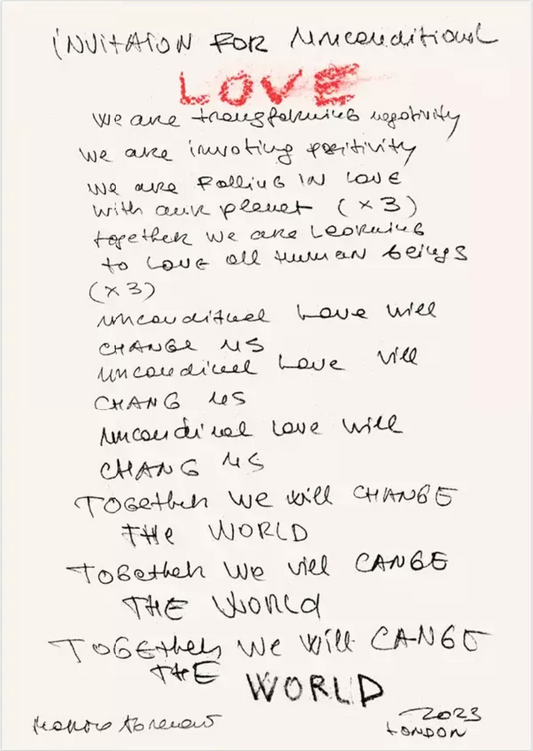 iNVITAION FOR Unconditional
LOVE
We are transforming negativity
We are invoting positivity
We are Falling IN LOVE
With our planet (x3)
together we are Learning
to LOVE all human beings
(x3)
unconditinel Love will
CHANGE US
uncondinel Love vill
CHANG US
uncondinal Love will
CHANG US
TOGether We will CHANGE
THe WORLD
TOGether We vill CANGE
THE WORLd
TOGEther We Will CANGE
THE WORLD
2023
LONDON